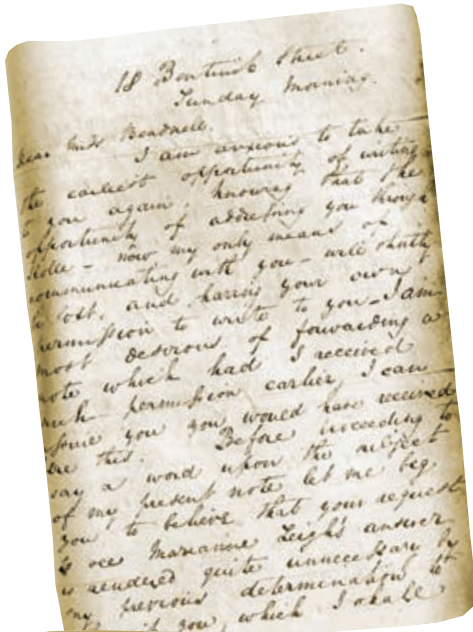 18 Bentinck Street.
Sunday Morning.
Dear Miss Beadnell,
I am anxious to take
the earliest opportunity of writing
to you again, knowing that the
opportunity of addressing you through
Kolle – now my only means of
communicating with you – will shortly
be lost, and having your own
permission to write to you – I am
most desirous of forwarding a
note which had I received
such permission earlier, I can
assure you you would have received
ere this. Before proceeding to
say a word upon the subject
of my present note let me beg
you to believe that your request
to see Marianne Leigh's answer
is rendered quite unnecessary by
my previous determination to
you, which I shall